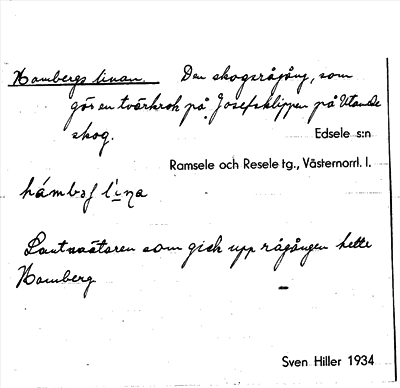 Hambergs linan. Den skogsrågång, som
gör en tvärkrok på Josefsklippen på Utande
skog.
Edsele s:n
Ramsele och Resele tg., Västernorrl. l.
hámbəʃ li̱na
Lantmätaren som gick upp rågången hette
Hamberg
Sven Hiller 1934